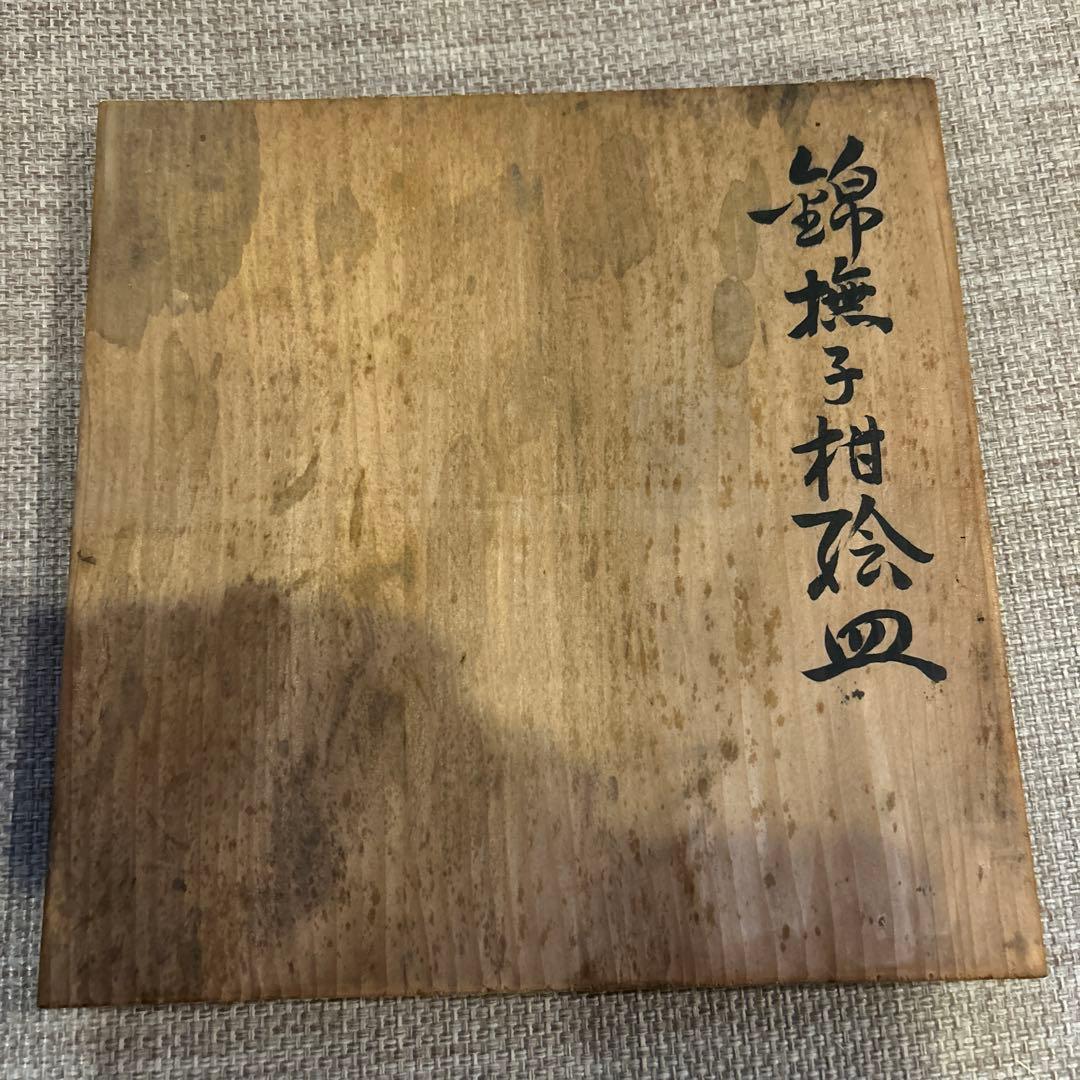 錦撫子柑絵皿